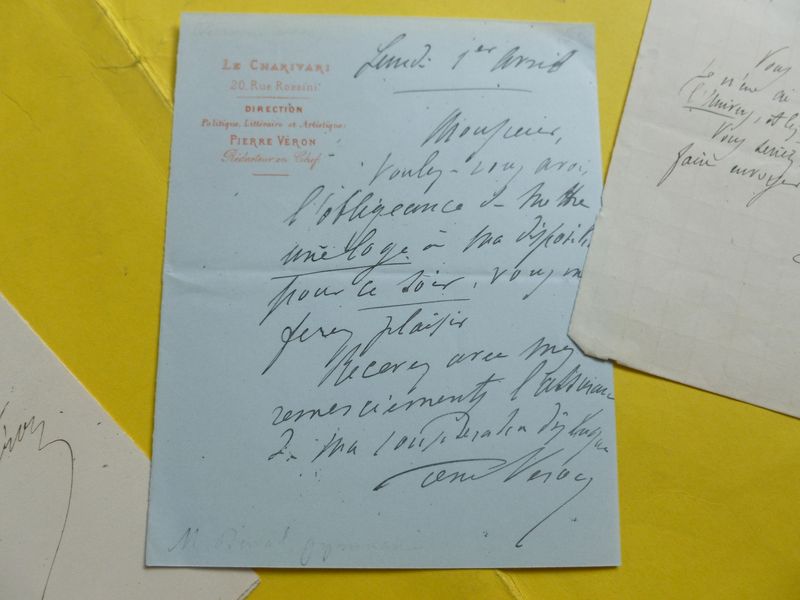 LE CHARIVARI
20, Rue Rossini
DIRECTION
Politique, Littéraire et Artistique:
PIERRE VÉRON
Rédacteur en Chef
Lundi 1er Avril
Monsieur,
Voulez-vous avoir
l'obligeance de mettre
une loge à ma disposit
pour ce soir, vous m
ferez plaisir
Recevez avec mes
remerciements l'assuran
de ma considération distinguée
Pierre Véron
Vous
Je n'me ai
l'Univers, et les
Vous serez
faire envoyer
éron